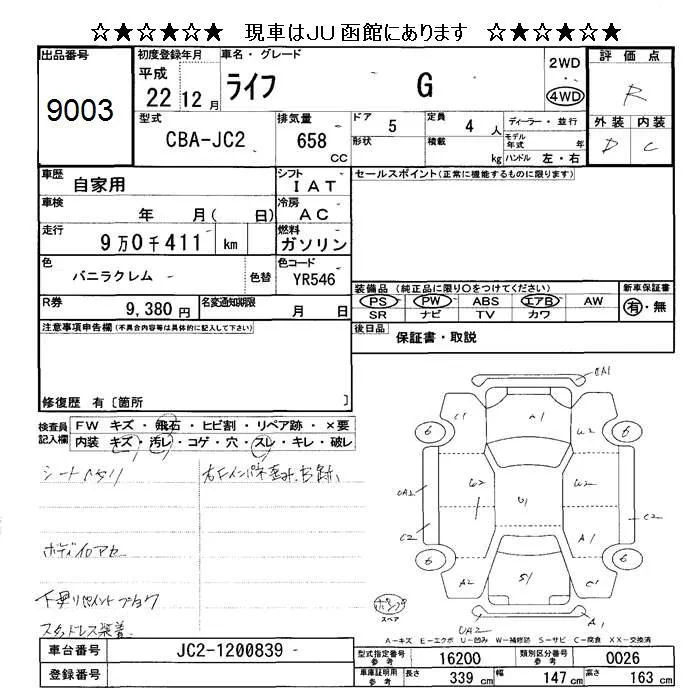 ☆★☆★☆★ 現車はJU函館にあります ☆★☆★☆★
出品番号 9003
初度登録年月 平成 22 12 月
車名・グレード ライフ G
2WD
4WD
評価点 R
外装 内装
D C
型式 CBA-JC2
排気量 658 cc
ドア 5
形状
定員 4 人
積載 kg
ディーラー・並行
モデル年式 年
ハンドル 左・右
車歴 自家用
シフト IAT
セールスポイント(正常に機能するものに限ります)
車検 年 月( 日)
冷房 AC
走行 9万0千411 km
燃料 ガソリン
色 バニラクレム 色替
色コード YR546
装備品(純正品に限り○をつけてください)
PS PW ABS エアB AW
SR ナビ TV カワ
新車保証書
有・無
R券 9,380円
名変通知期限 月 日
後日品 保証書・取説
注意事項申告欄(不具合内容等は具体的に記入して下さい)
修復歴 有〔箇所 〕
検査員記入欄
FW キズ・飛石・ヒビ割・リペア跡・×要
内装 キズ・汚レ・コゲ・穴・スレ・キレ・破レ
ボディイロアセ
スタッドレス装着
UA1
C1 A1 U2
6 6
U2 U2
UA2 U1 C2
C2 A1
6 6
A2 S1 C1
スペア
UA2 A1
A－キズ E－エクボ U－凹み W－補修跡 S－サビ C－腐食 XX－交換済
車台番号 JC2-1200839
登録番号
型式指定番号 参考 16200
類別区分番号 参考 0026
車庫証明用 参考 長さ 339 cm 幅 147 cm 高さ 163 cm